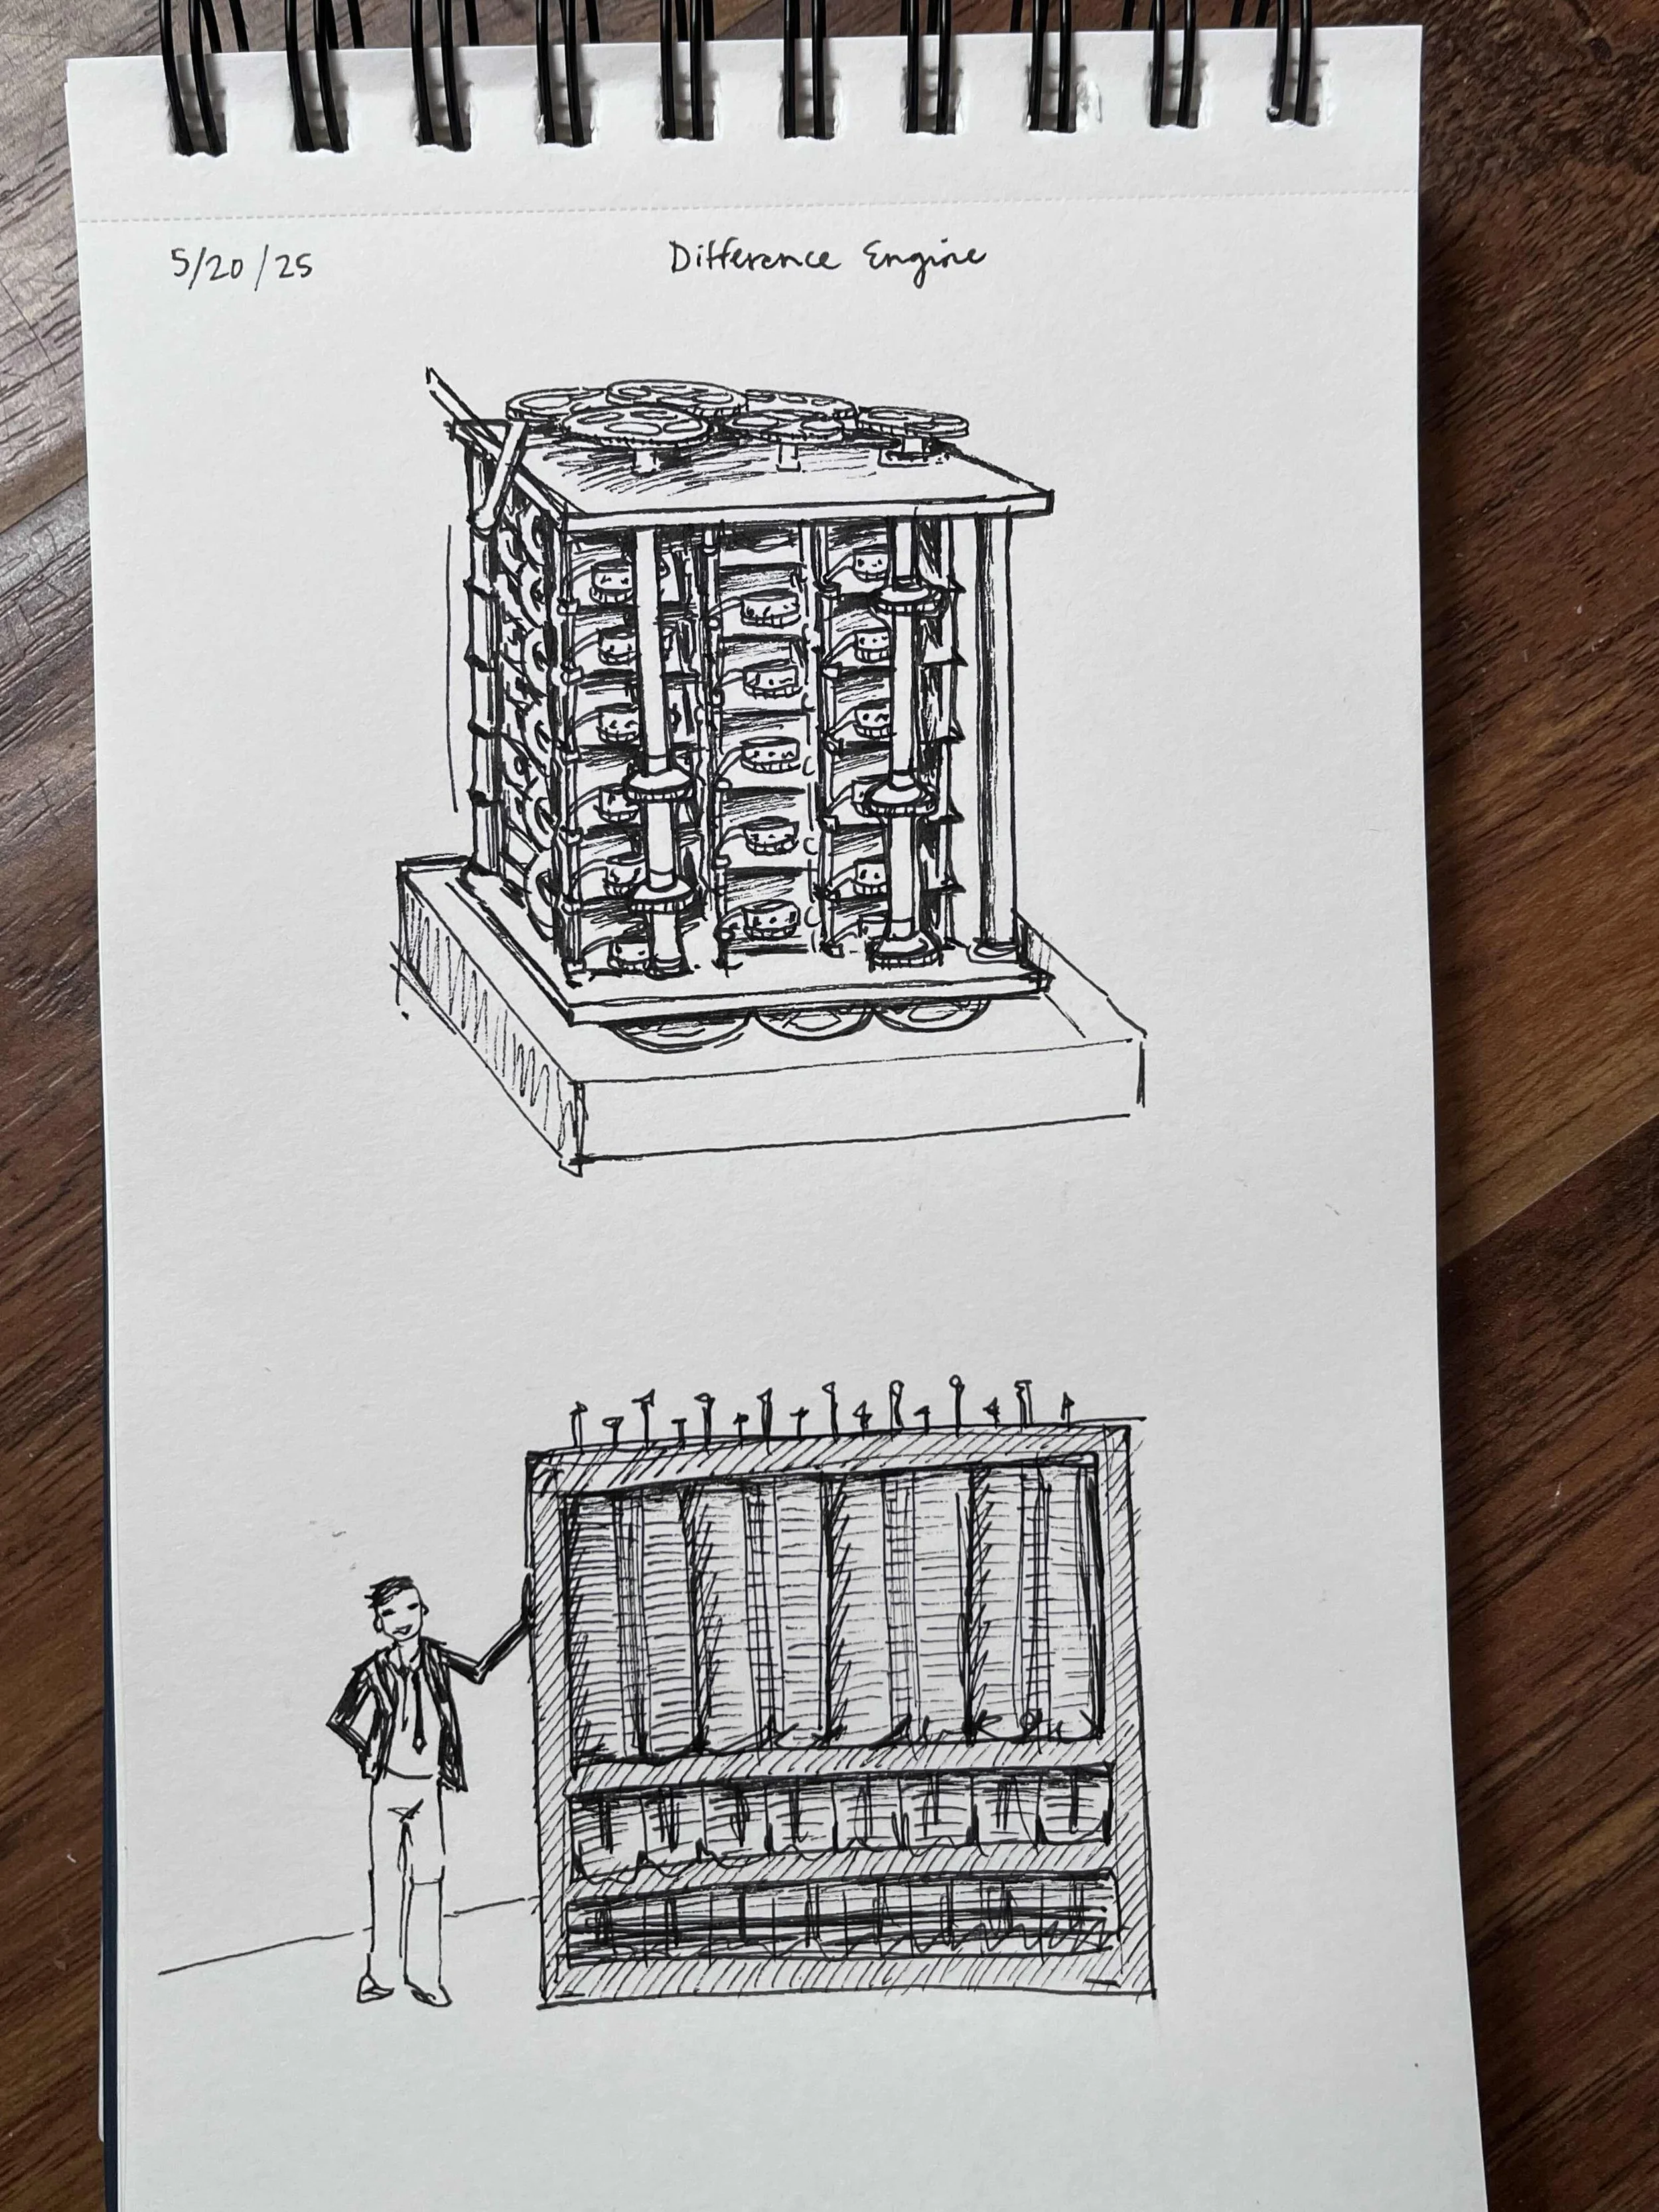 5/20/25
Difference Engine